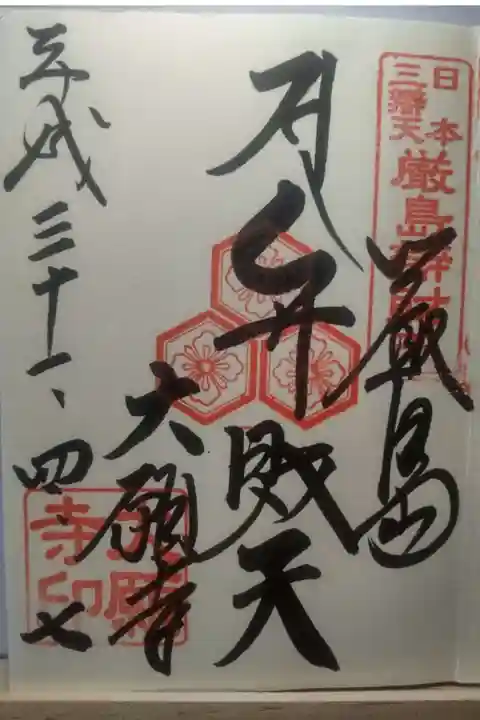 日本
三辨天
厳島辨財
厳島
弁財天
大願寺
平成三十一、四、七
大願
寺印